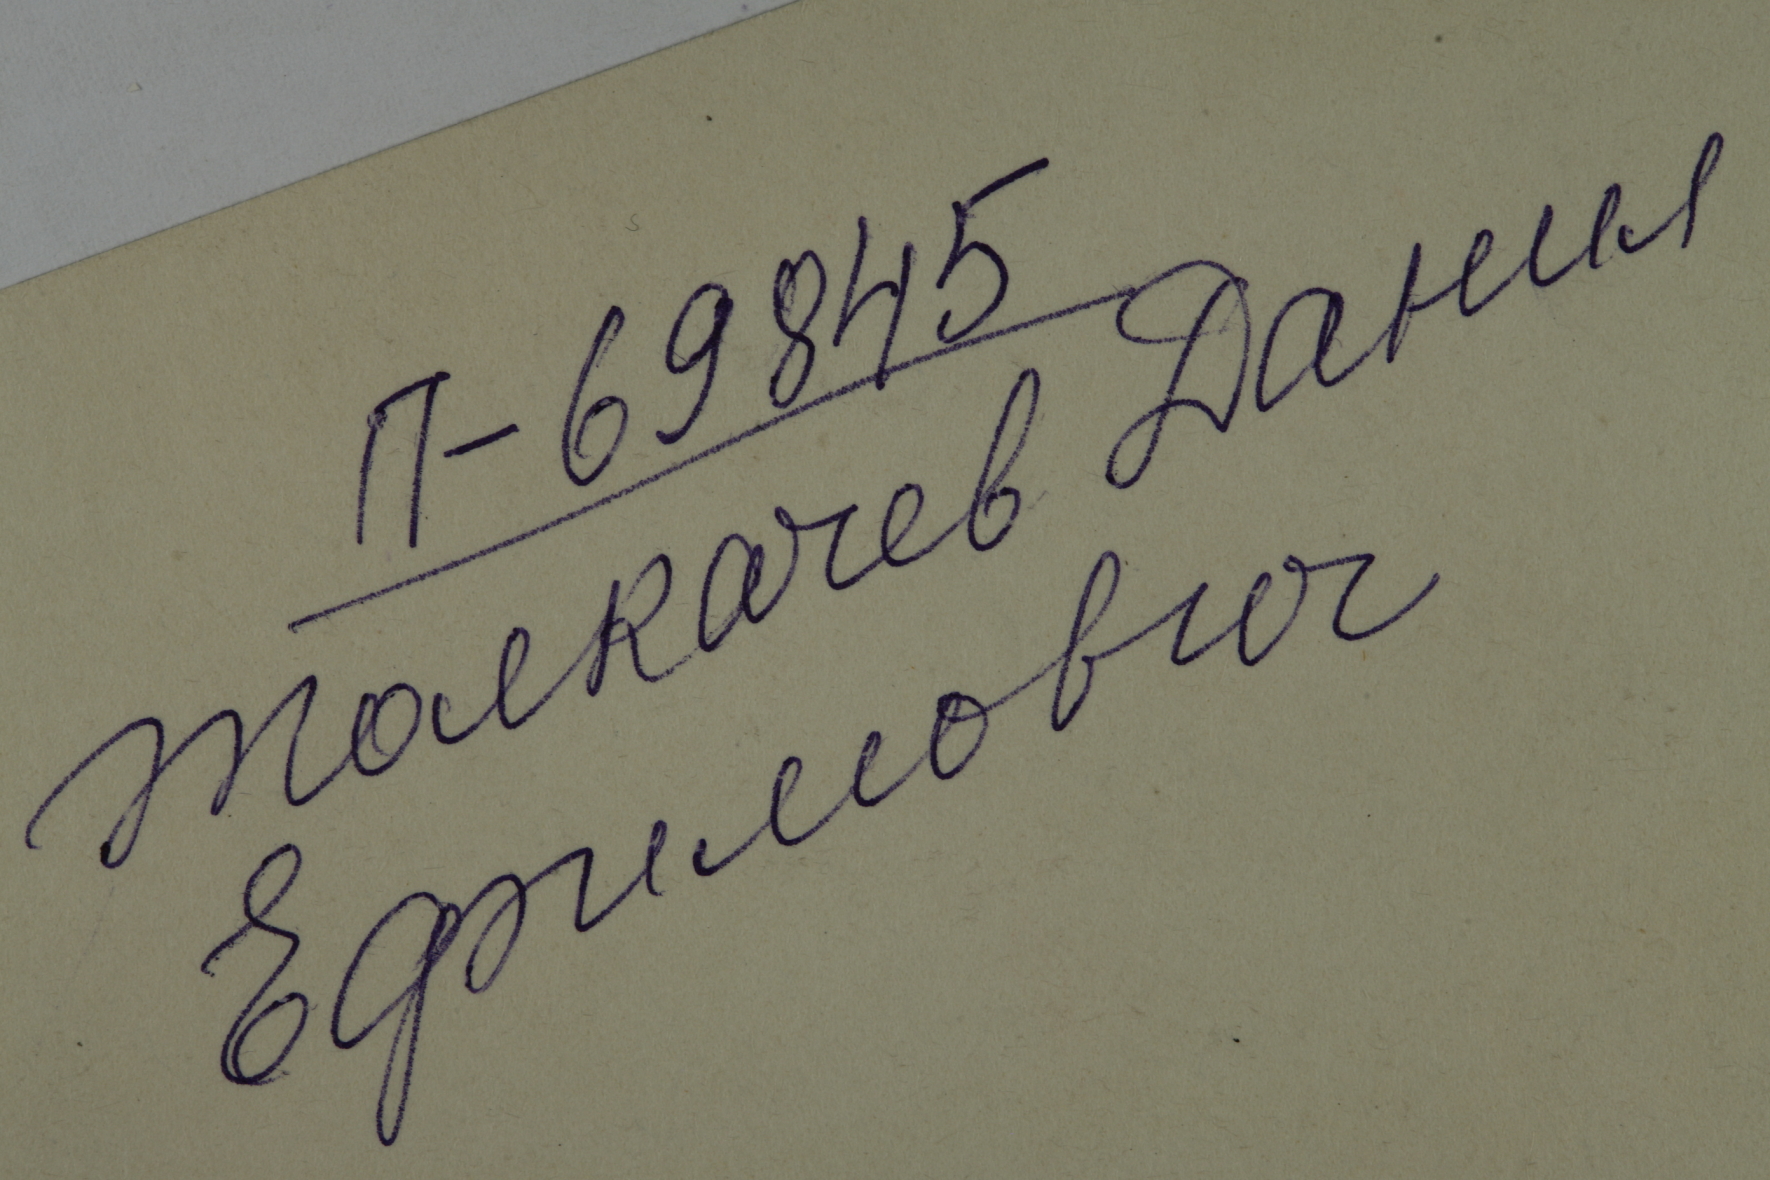 П-69845
Толкачев Данил
Ефимович